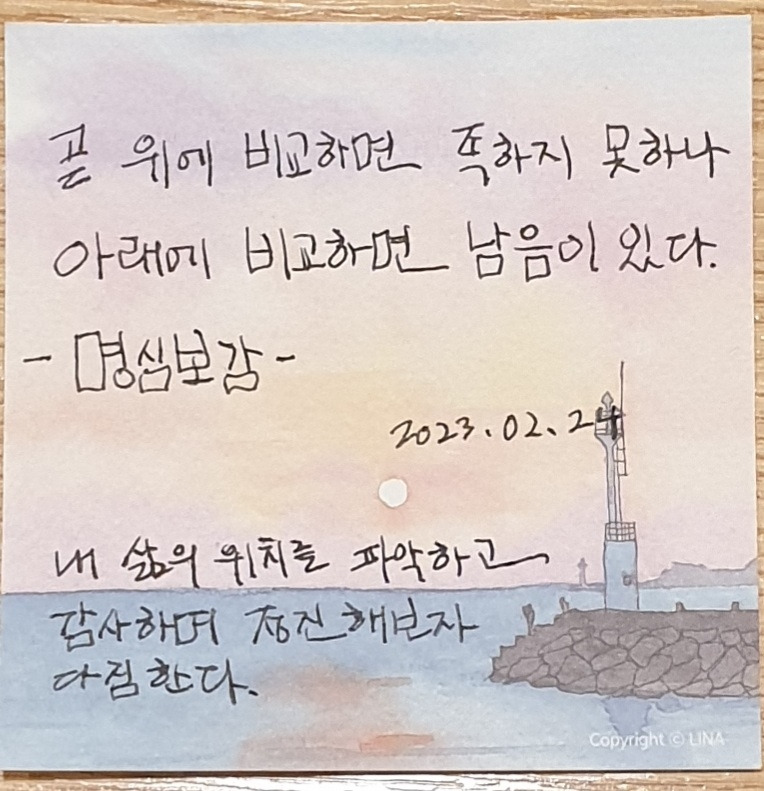 곧 위에 비교하면 족하지 못하나
아래에 비교하면 남음이 있다.
- 명심보감 -
2023.02.24
내 삶의 위치를 파악하고
감사하며 정진해보자
다짐한다.
Copyright ⓒ LINA